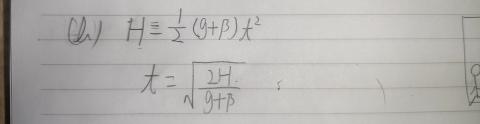 (h) H = ½ (g+β) t²
t = √(2H / g+β)